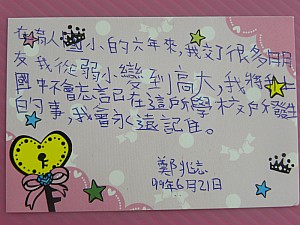 在 人 國小的六年來,我交了很多朋
友我從弱小變到高大,我將來
國中不會忘記在這所學校所發生
的事,我會永遠記住。
鄭兆
99年6月21日